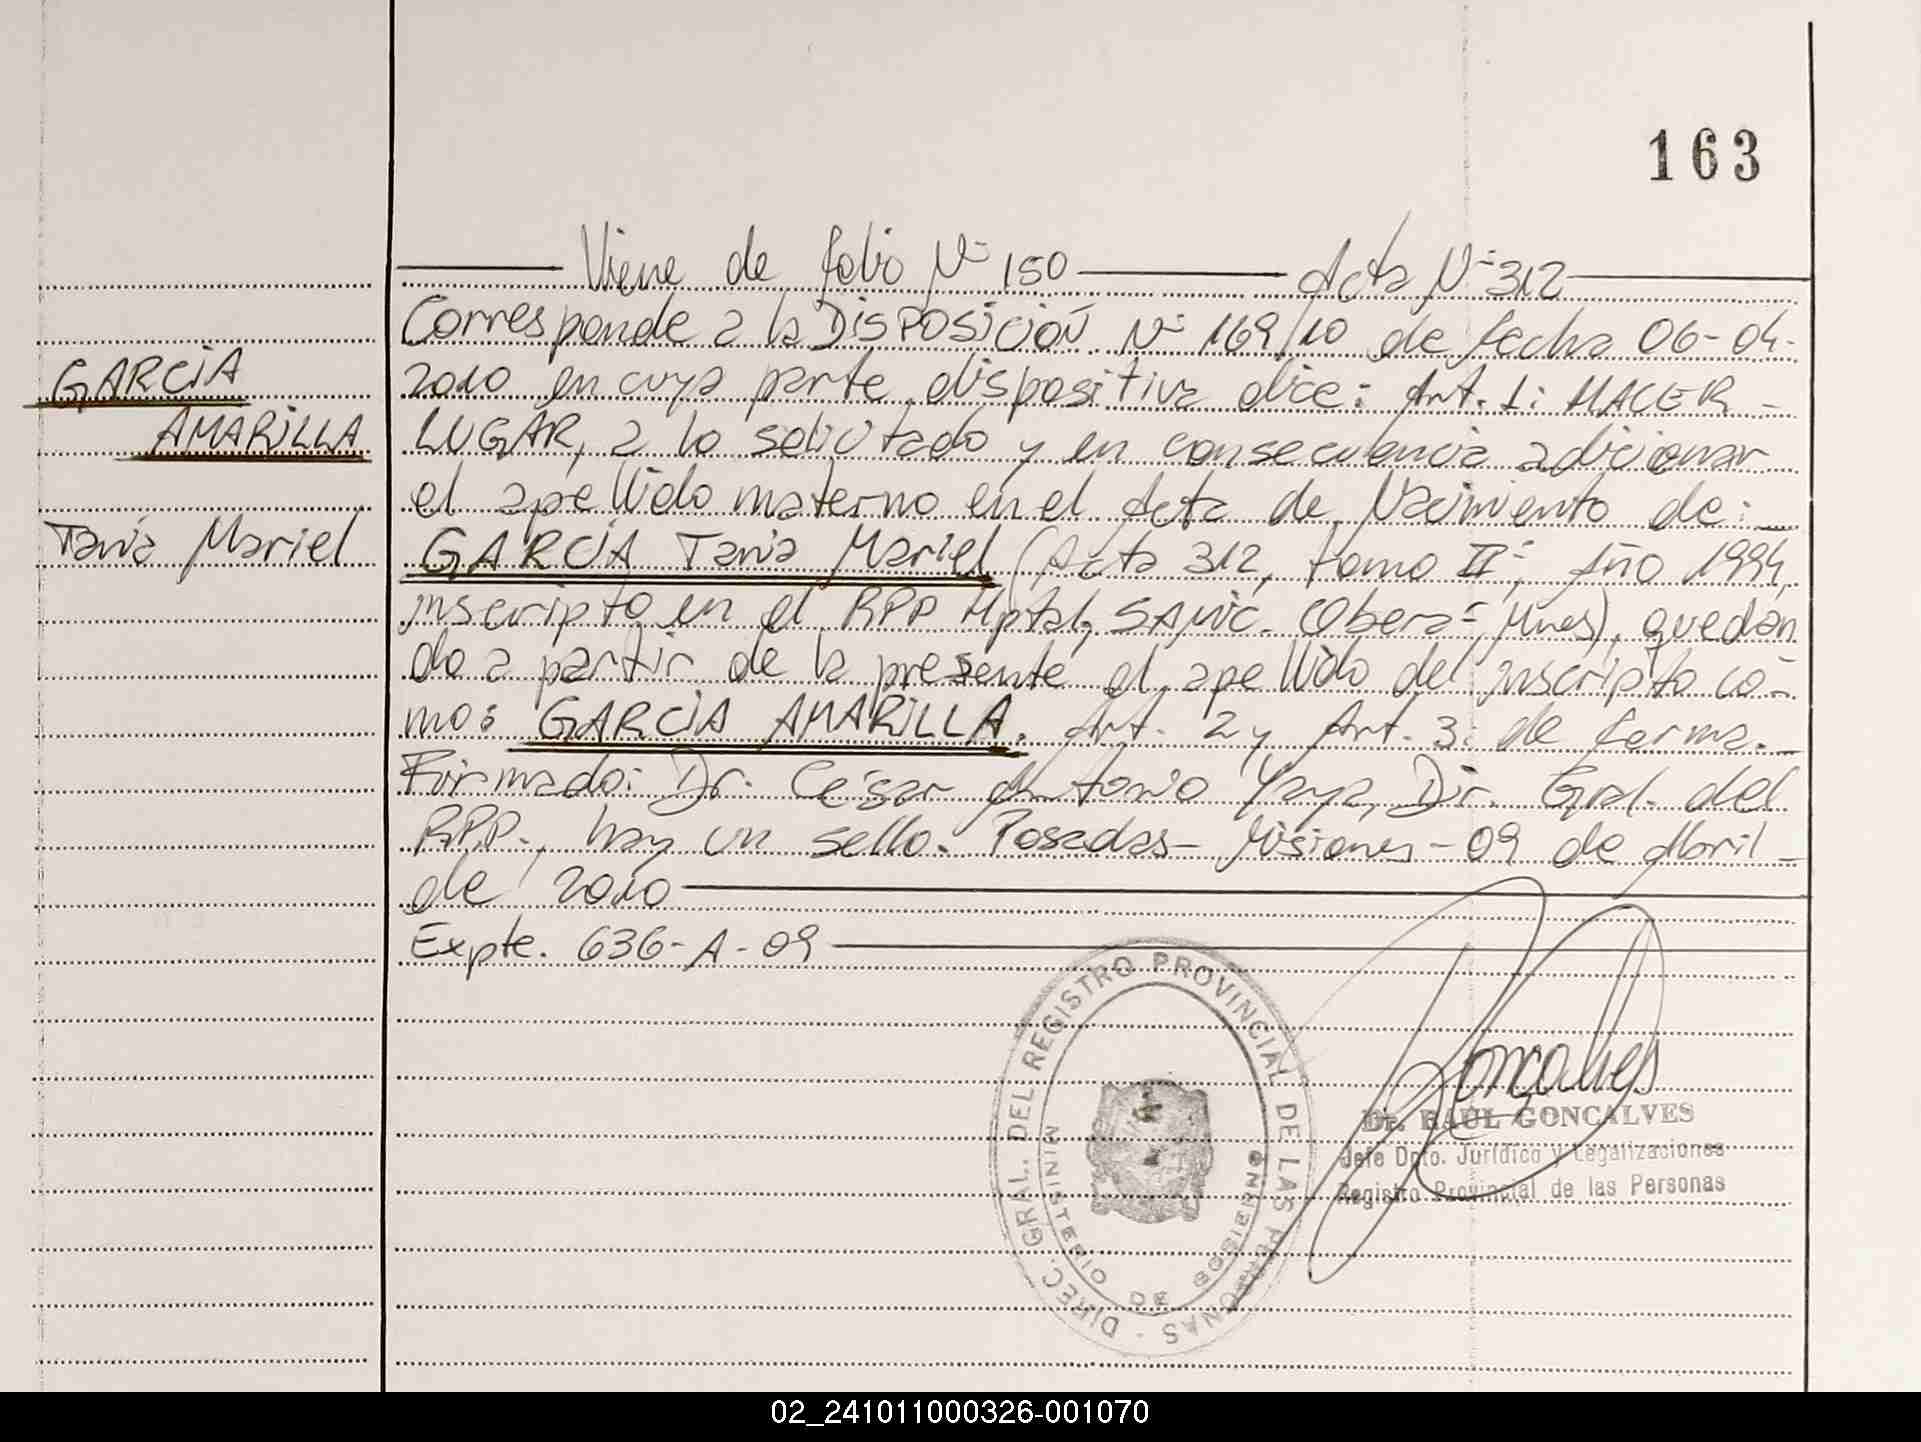 163
Viene de folio Nº 150 Acta Nº 312
Corresponde a la DISPOSICIÓN Nº 169/10 de fecha 06-04-
GARCÍA
2010 en cuya parte dispositiva dice: Art. 1: HACER-
AMARILLA
LUGAR, a lo solicitado y en consecuencia adicionar
el apellido materno en el Acta de Nacimiento de:
Tania Mariel
GARCÍA Tania Mariel (Acta 312, tomo IIº, Año 1994,
inscripto en el RPP Hptal, SAMIC. Oberá-, Mnes), quedan
do a partir de la presente el apellido del inscripto co-
mo: GARCÍA AMARILLA. Art. 2 y Art. 3: de forma.-
Firmado: Dr. César Antonio Yaya, Dir. Gral. del
RPP., hay un sello. Posadas- Misiones-09 de Abril-
de 2010
Expte. 636-A-09
DIREC. GRAL. DEL REGISTRO PROVINCIAL DE LAS PERSONAS -
MINISTERIO DE GOBIERNO
Goncalves
Dr. RAUL GONCALVES
Jefe Dpto. Jurídico y Legalizaciones
Registro Provincial de las Personas
02_241011000326-001070